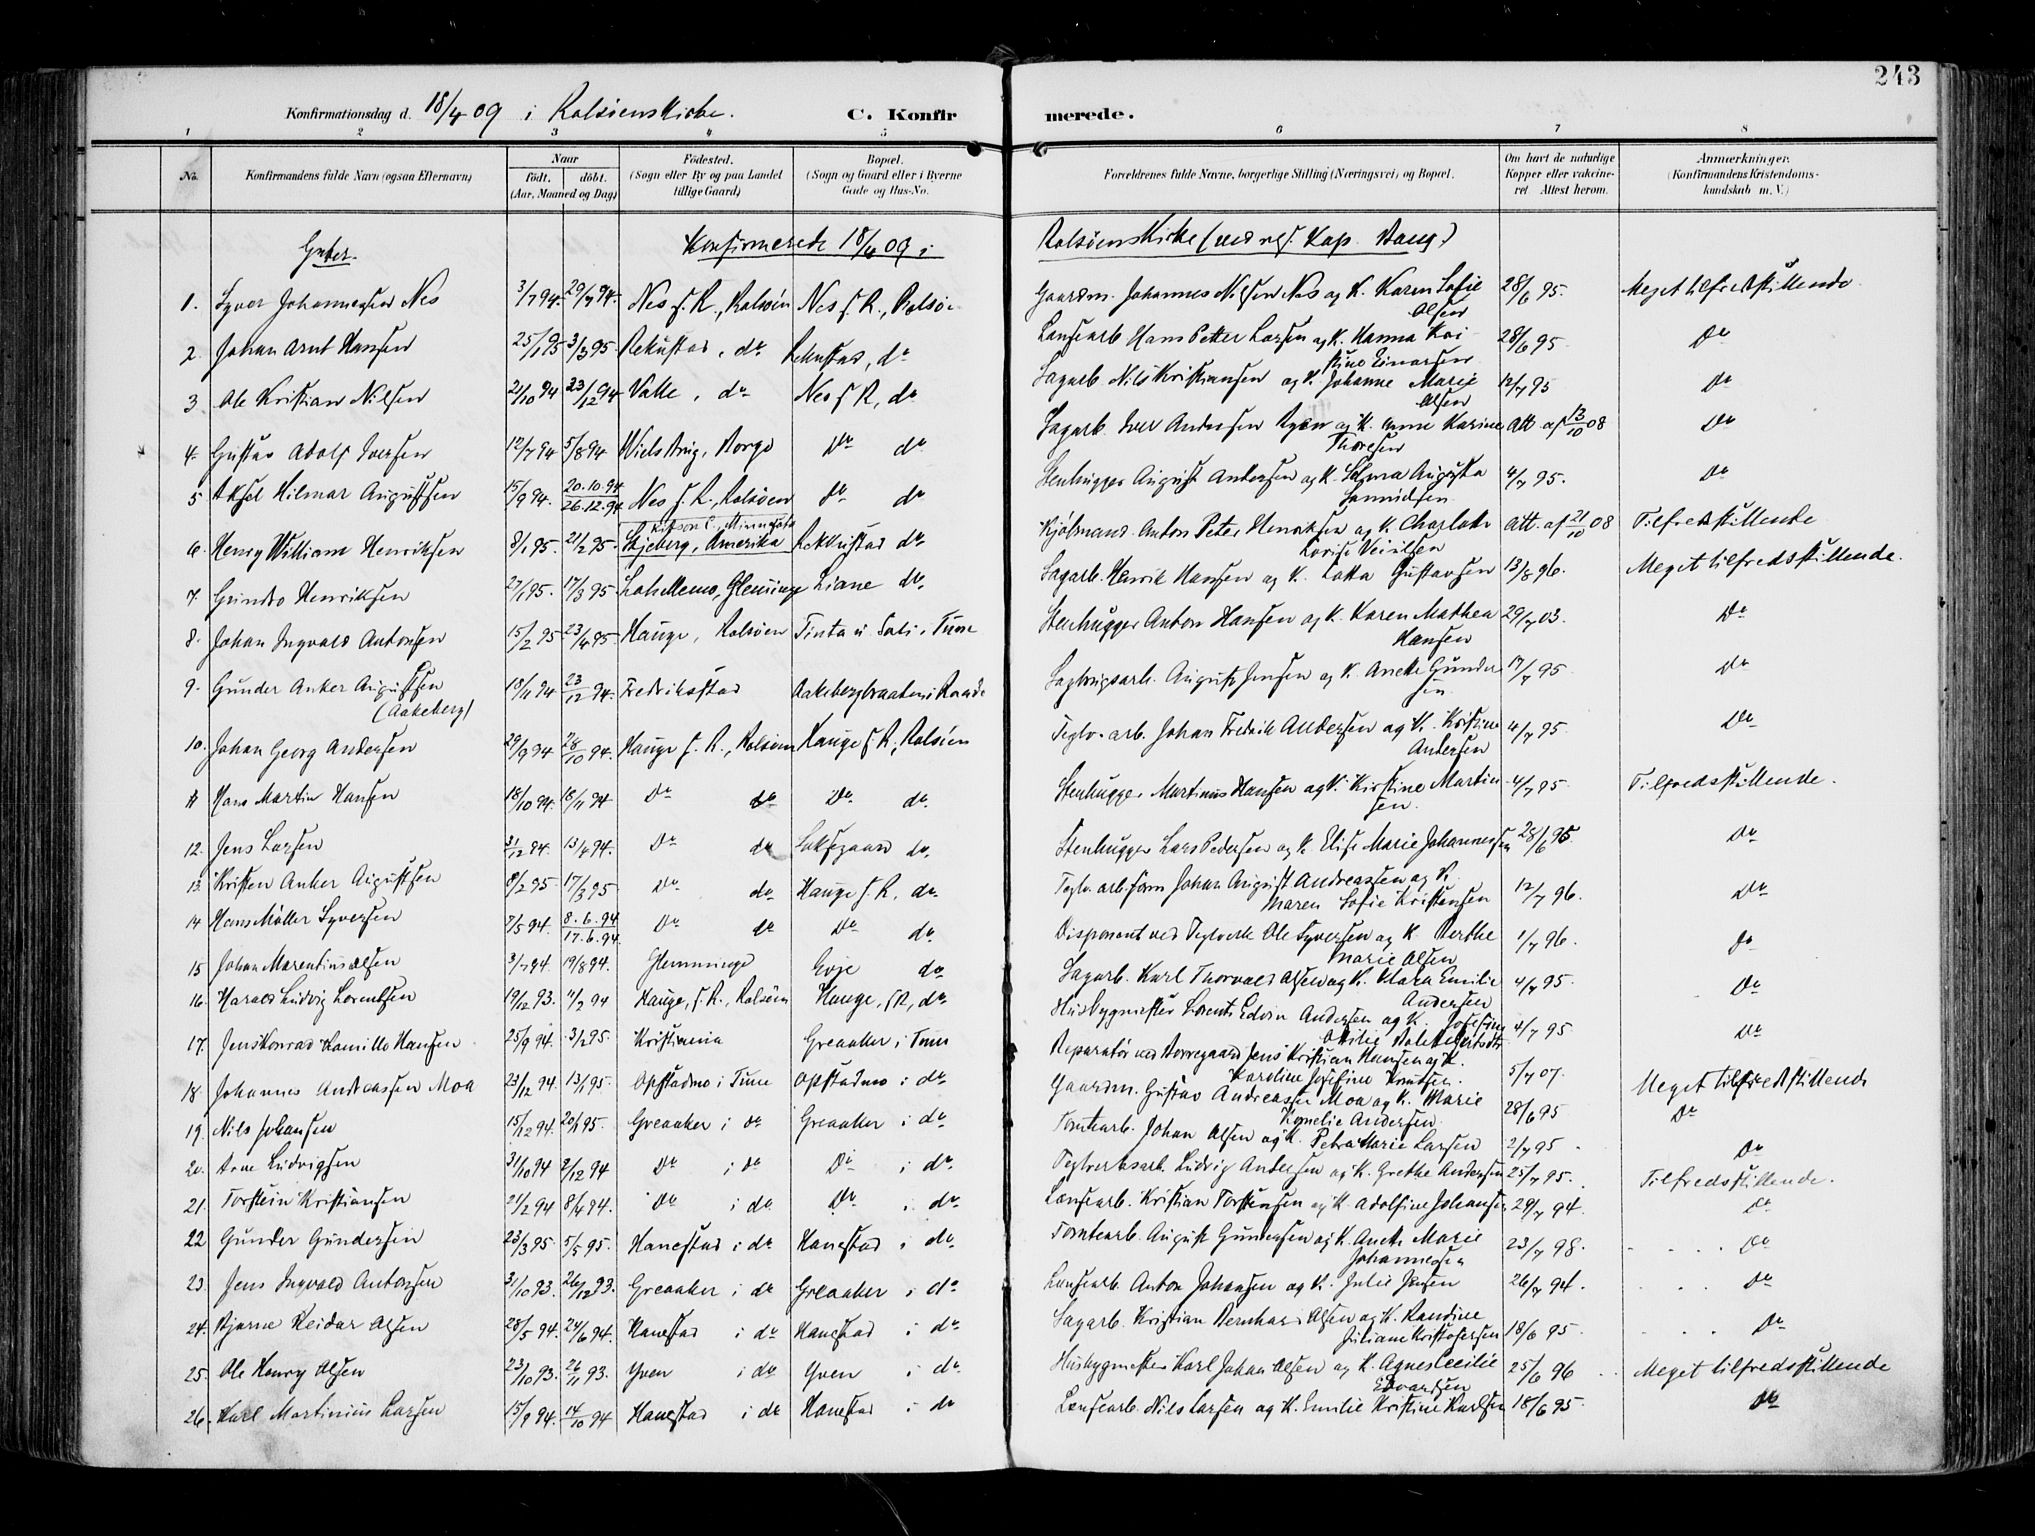 243
Konfirmationsdag d. 18/4 09 i Rolsöens Kirke. C. Konfirmerede.
1 2 3 4 5 6 7 8
No. Konfirmandens fulde Navn (ogsaa Efternavn) Naar født. døbt. (Aar, Maaned og Dag) Fødested. (Sogn eller By og paa Landet tillige Gaard) Bopæl. (Sogn og Gaard eller i Byerne Gade og Hus-No. Forældrenes fulde Navne, borgerlige Stilling (Næringsvei) og Bopæl. Om havt de naturlige Kopper eller vakcineret Attest herom. Anmærkninger. (Konfirmandens Kristendomskundskab m. V.)
Gutter. Konfirmerede 18/4 09 i Rolsöens Kirke (ved resf. Kap. Stang.)
1. Syver Johannessen Nes 3/7 94. 29/7 94. Nes f. R., Rolsöen Nes f. R., Rolsö Gaardm. Johannes Nilsen Nes og K. Karen Sofie Olsen 28/6 95. Meget tilfredsstillende
2. Johan Arnt Hansen 25/1 95 3/3 95 Rekustad, do Rekustad, do Løusearb. Hans Petter Larsen og K. Hanna Kristine Einarsen 28/6 95 Do
3 Ole Kristian Nilsen 21/10 94 23/12 94 Valle, do Nes f R, do Sagarb. Nils Kristiansen og K. Johanne Marie Olsen 12/7 95 Do
4. Gustav Adolf Iversen 12/7 94 5/8 94 Borge Do do Sagarb. Iver Andersen og K. Anne Karine Thoresen Att. af 13/10 08 Do
5 Aksel Hilmar Augustsen 15/9 94. 20.10.94 26.12.94 Nes f. R., Rolsöen do do Stenhugger August Andersen og K. Selma Augusta 4/7 95. Do
6. Henry William Henriksen 8/1 95. 21/2 95. Minnesota Skjeberg, Amerika Rekkustad do Anton Peter Henriksen og K. Charlotte Lovise Att. af 21/10 08 Tilfredsstillende
7. Henriksen 27/1 95. 17/3 95 Glemminge Liane do. Sagarb. Henrik Hansen og K. Lotta Gustavsen 13/8 96. Meget tilfredsstillende.
8. Johan Ingvald Antonsen 15/2 95 23/4 95 Hauge, Rolsöen i Tune Stenhugger Anton Hansen og K. Karen Mathea Hansen 29/7 03. Do
9. Gunder Anker Augustsen (Aakeberg) 18/11 94 23/12 94. Fredriksstad Aakebergbraaten i Raade Augustz Jensen og K. Anette Gundersen 17/7 95 Do
10. Johan Georg Andersen 29/9 94 28/10 94. Hauge f. R., Rolsöen Hauge f R, Rolsöen Teglv. arb. Johan Fredrik Andersen og K. Kristine Andersen 4/7 95 Do
11 Hans Martin Hansen 18/10 94. 18/11 94 Do do Do. do. Stenhugger Martinius Hansen og K. Kirstine Martinsen. 4/7 95 Tilfredsstillende.
12. Jens Larsen 31/12 94. 13/4 94. Do do do. Stenhugger Lars Pedersen og K. Elise Marie Johannessen 28/6 95. Do
13. Kristen Anker Augustsen 8/2 95 17/3 95 Do do Hauge f. R, do. Teglv. arb. form Johan August Andreassen og K. Maren Sofie Kristensen 12/7 96. Do
14 Hans Möller Syversen 7/5 94. 8.6.94 17.6.94. Do do Do do. Disponent ved Teglverk Ole Syversen og K. Berthe Marie Olsen 1/7 96. Do
15 Johan Marentius Olsen 3/7 94. 19/8 94. Glemminge Evje do Sagarb. Karl Thorvald Olsen og K. Klara Emilie Andersen 4/7 95. Do
16. Harald Ludvig Lorentsen 19/12 93. 11/2 94 Hauge, f. R., Rolsöen Hauge, f R, do. Husbygmester Lorents Edvin Andersen og K. Josefine Ottilie 4/7 95 Do
17. Jens Konrad Kamillo Hansen 25/9 94. 3/2 95. Kristiania Greaaker i Tune Reparatör ved Borregaard Jens Kristian Hansen og K. Karoline Josefine Knudsen. 5/7 07.
18. Johannes Andreassen Moa 23/12 94. 13/1 95. Opstadmo i Tune Opstadmo i do Gaardm. Gustav Andreassen Moa og K. Marie Kornelie Andersen. 28/6 95 Meget tilfredsstillende
19. Nils Johansen 15/12 94. 20/1 95. Greaaker i do Greaaker i do Tomtearb. Johan Olsen og K. Petra Marie Larsen 2/7 95 Do
20. Arne Ludvigsen 31/10 94 2/12 94 Do i do Do i do. Teglverksarb. Ludvig Andersen og K. Grethe Andersen 25/7 95. Do
21. Torstein Kristiansen 21/2 94 8/4 94. Do i do Do. i do. Løusearb. Kristian Torstensen og K. Adolfine Johansen 29/7 94. Tilfredsstillende.
22 Gunder Gundersen 23/3 95. 5/5 95. Hanestad i do Hanestad i do. Tomtearb. August Gundersen og K. Anette Marie Johannessen 23/7 98. Do
23. Jens Ingvald Antonsen 31/10 93. 26/12 93. Greaaker i do Greaaker i do Løusearb. Anton Johansen og K. Julie Jensen 26/7 94. Do
24. Bjarne Reidar Olsen 28/5 94. 24/6 94. Hanestad i do Hanestad i do. Sagarb. Kristian Bernhard Olsen og K. Randine Juliane Kristofersen 18/6 95 Do
25. Ole Henry Olsen 23/10 93. 26/11 93. Yven i do Yven i do. Husbygmester Karl Johan Olsen og K. Agnes Cecilie Edvardsen 25/6 96 Meget tilfredsstillende
26. Karl Martinius Larsen 15/9 94. 14/10 94 Hanestad i do Hanestad i do Løusearb. Nils Larsen og K. Emilie Kristine Karlsen 18/6 95. Do